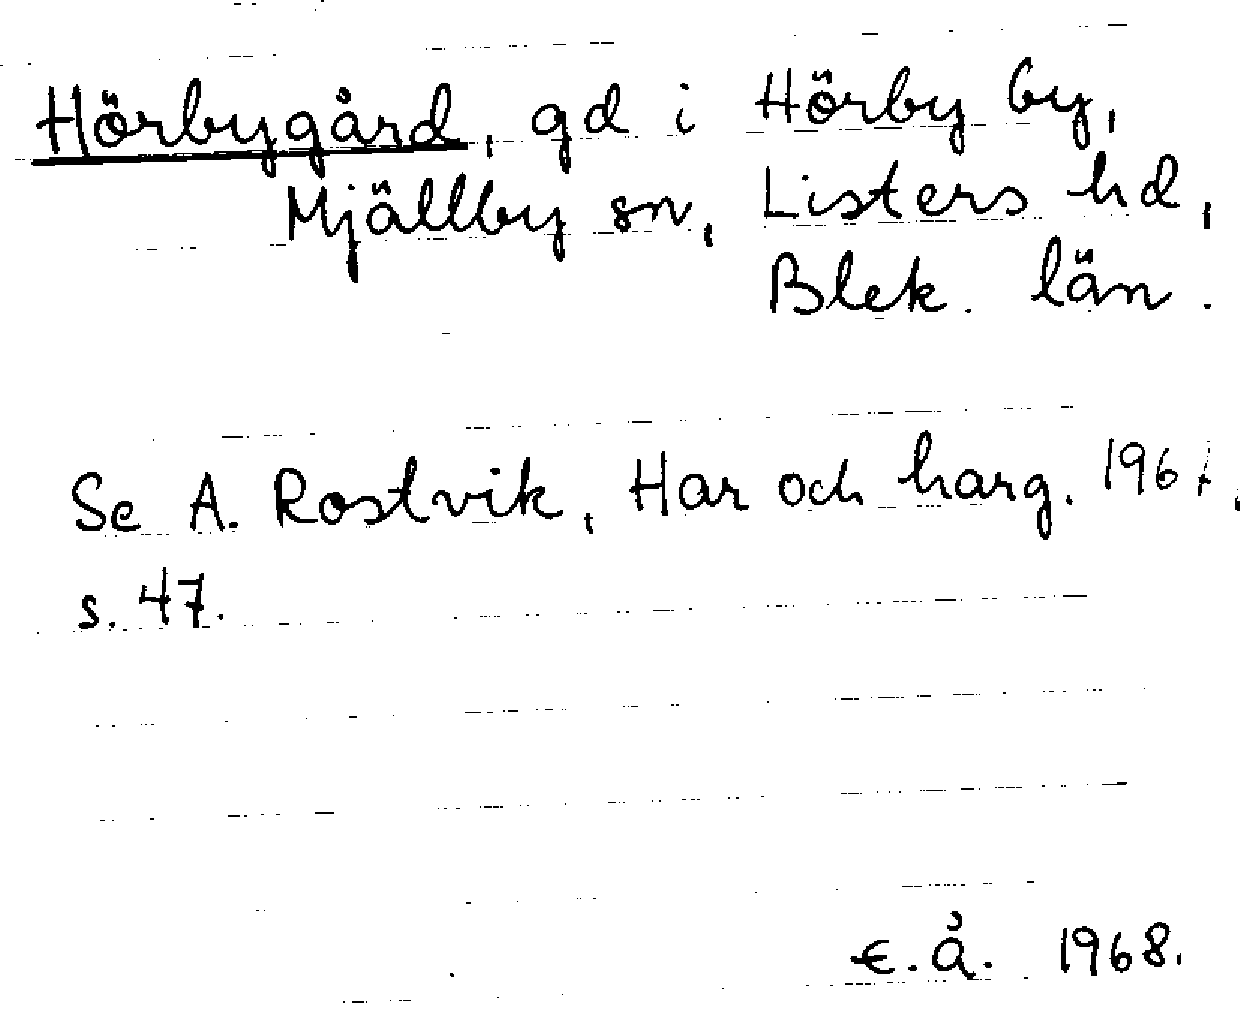 Hörbygård, gd i Hörby by,
Mjällby sn, Listers hd,
Blek. län.
Se A. Rostvik, Har och harg. 1967.
s. 47.
E.Å. 1968.